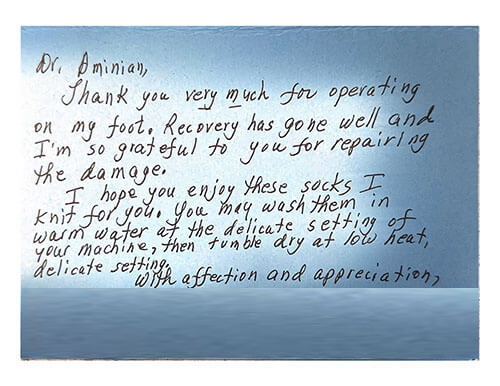 Dr. Aminian,
Thank you very much for operating
on my foot. Recovery has gone well and
I'm so grateful to you for repairing
the damage.
I hope you enjoy these socks I
knit for you. You may wash them in
warm water at the delicate setting of
your machine, then tumble dry at low heat,
delicate setting.
With affection and appreciation,